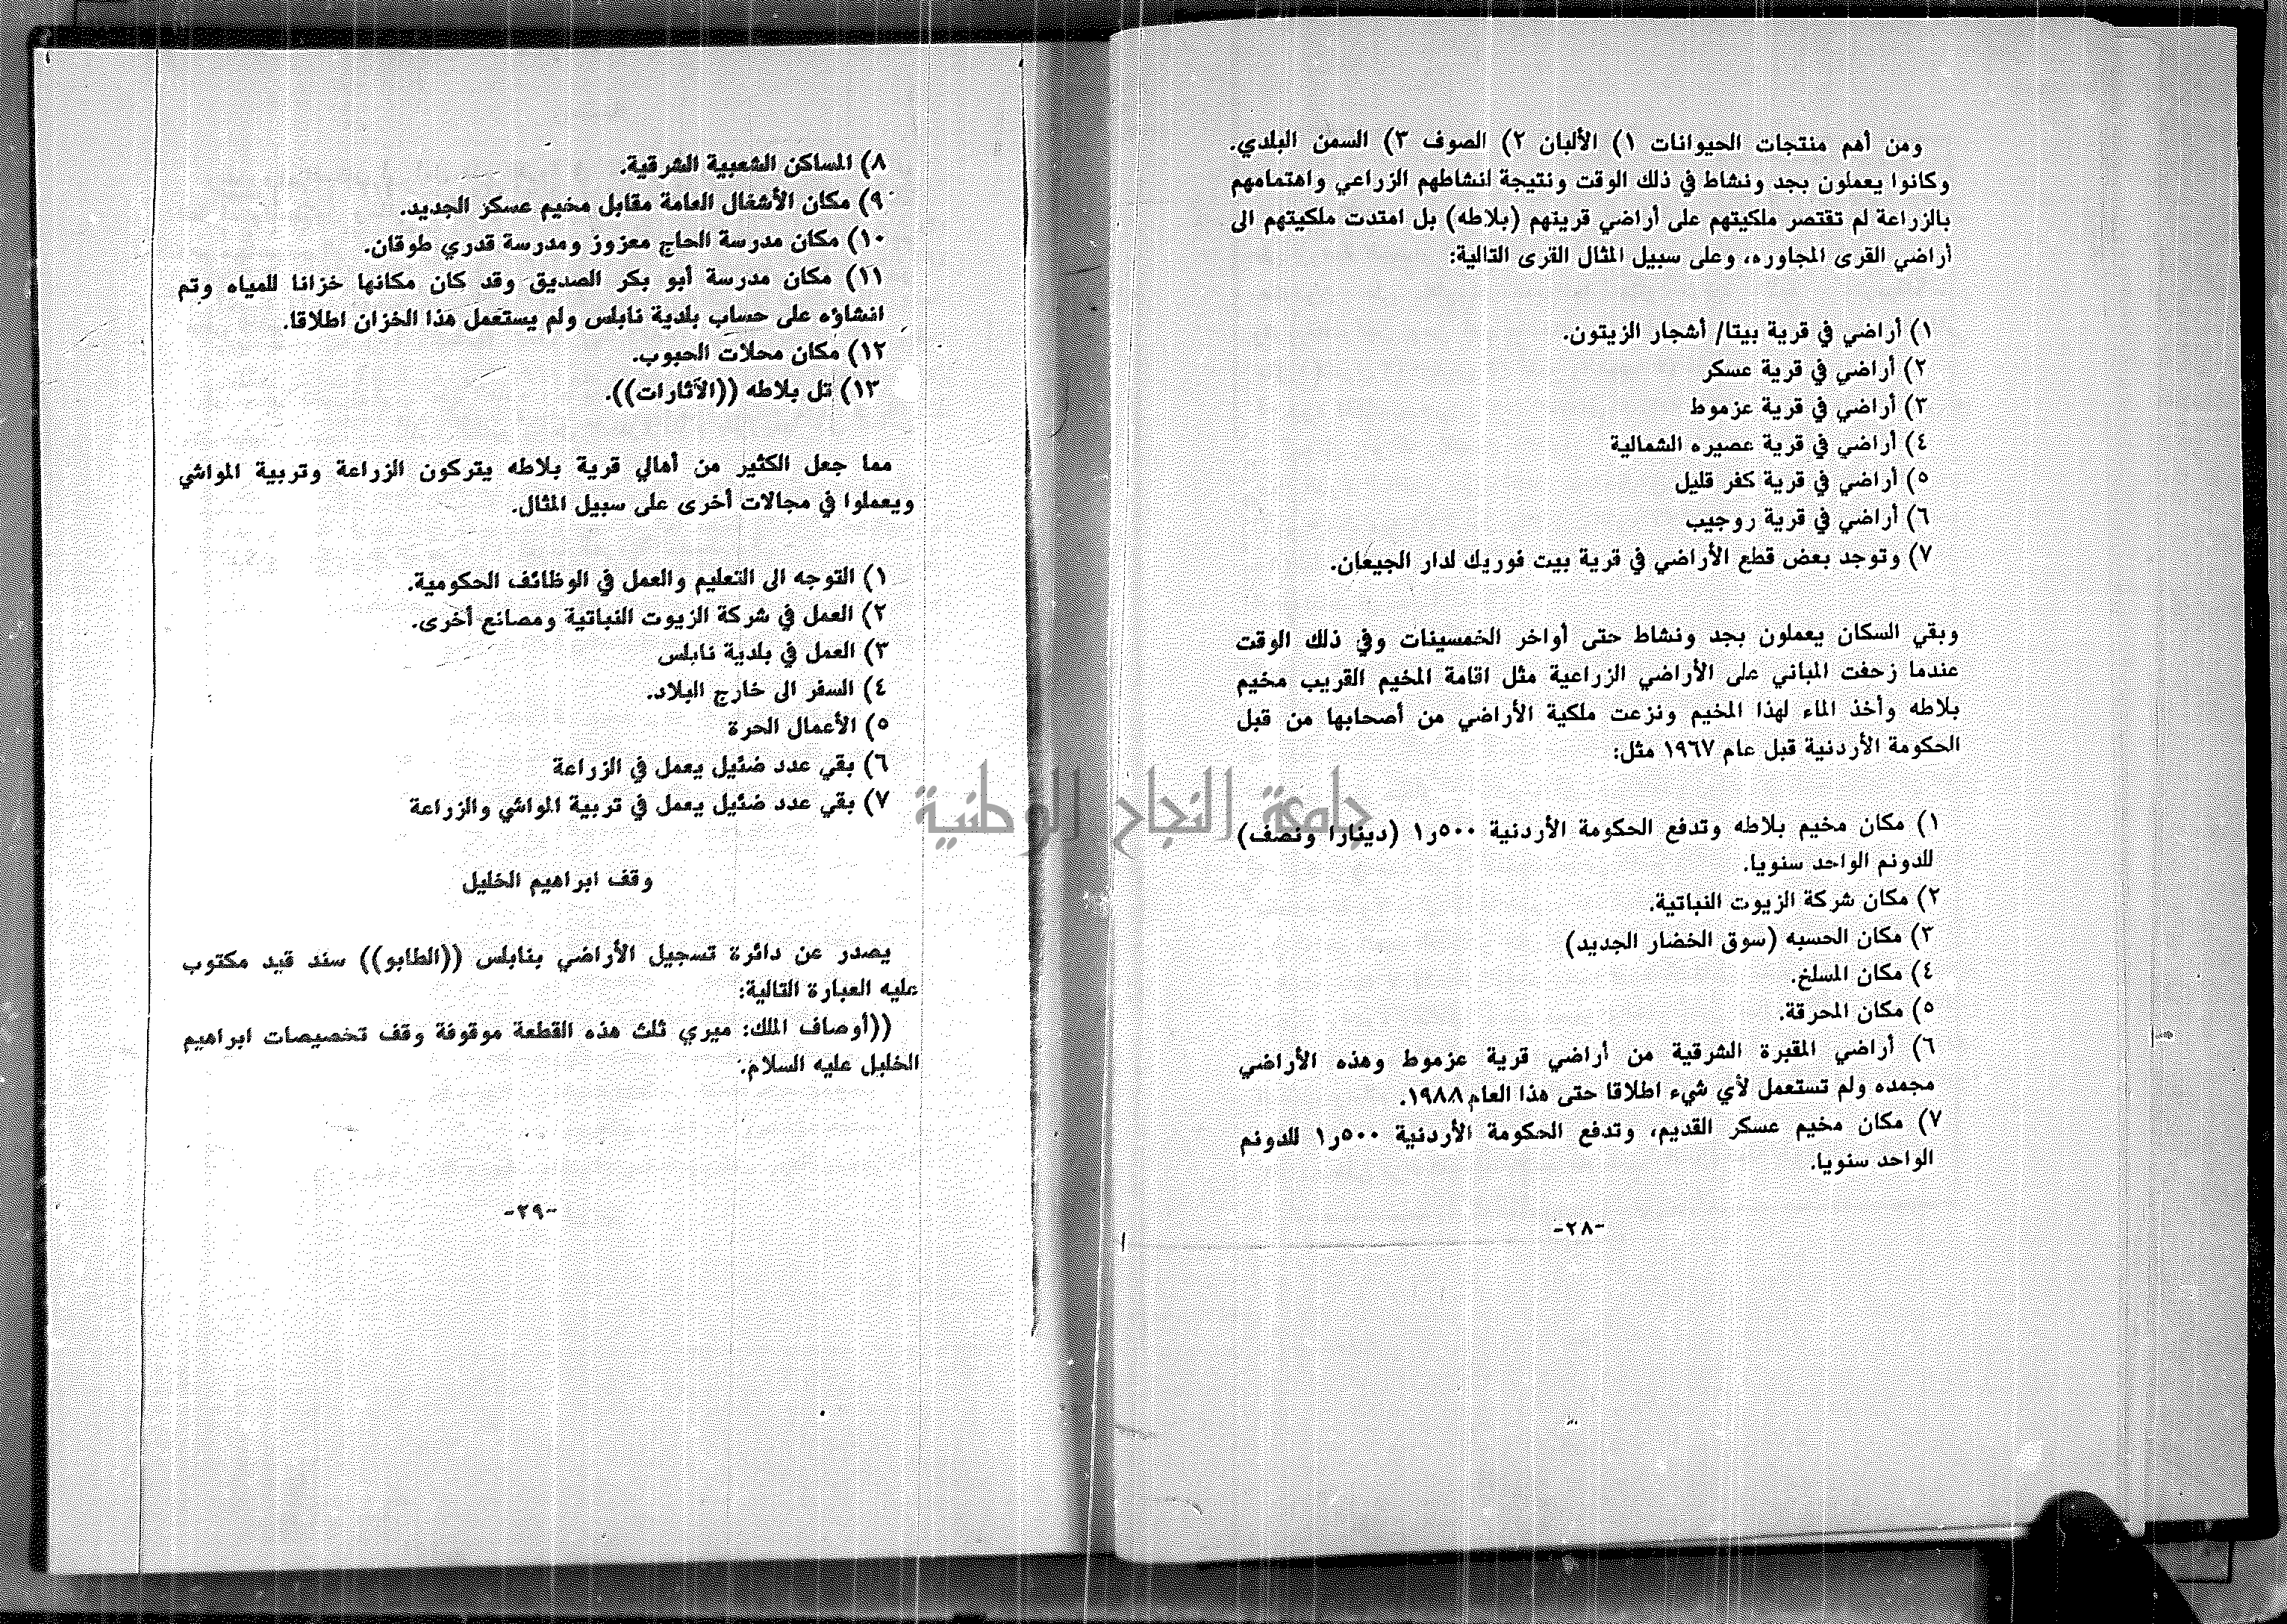 ومن أهم منتجات الحيوانات ١) الألبان ٢) الصوف ٣) السمن البلدي.
وكانوا يعملون بجد ونشاط في ذلك الوقت ونتيجة لنشاطهم الزراعي واهتمامهم
بالزراعة لم تقتصر ملكيتهم على أراضي قريتهم (بلاطه) بل امتدت ملكيتهم الى
أراضي القرى المجاوره، وعلى سبيل المثال القرى التالية:
١) أراضي في قرية بيتا/ أشجار الزيتون.
٢) أراضي في قرية عسكر
٣) أراضي في قرية عزموط
٤) أراضي في قرية عصيره الشمالية
٥) أراضي في قرية كفر قليل
٦) أراضي في قرية روجيب
٧) وتوجد بعض قطع الأراضي في قرية بيت فوريك لدار الجيعان.
وبقي السكان يعملون بجد ونشاط حتى أواخر الخمسينات وفي ذلك الوقت
عندما زحفت المباني على الأراضي الزراعية مثل اقامة المخيم القريب مخيم
بلاطه وأخذ الماء لهذا المخيم ونزعت ملكية الأراضي من أصحابها من قبل
الحكومة الأردنية قبل عام ١٩٦٧ مثل:
١) مكان مخيم بلاطه وتدفع الحكومة الأردنية ٥٠٠ر١ (دينارا ونصف)
للدونم الواحد سنويا.
٢) مكان شركة الزيوت النباتية.
٣) مكان الحسبه (سوق الخضار الجديد)
٤) مكان المسلخ.
٥) مكان المحرقة.
٦) أراضي المقبرة الشرقية من أراضي قرية عزموط وهذه الأراضي
مجمده ولم تستعمل لأي شيء اطلاقا حتى هذا العام ١٩٨٨.
٧) مكان مخيم عسكر القديم، وتدفع الحكومة الأردنية ٥٠٠ر١ للدونم
الواحد سنويا.
-٢٨-
٨) المساكن الشعبية الشرقية.
٩) مكان الأشغال العامة مقابل مخيم عسكر الجديد.
١٠) مكان مدرسة الحاج معزوز ومدرسة قدري طوقان.
١١) مكان مدرسة أبو بكر الصديق وقد كان مكانها خزانا للمياه وتم
انشاؤه على حساب بلدية نابلس ولم يستعمل هذا الخزان اطلاقا.
١٢) مكان محلات الحبوب.
١٣) تل بلاطه ((الآثارات)).
مما جعل الكثير من أهالي قرية بلاطه يتركون الزراعة وتربية المواشي
ويعملوا في مجالات أخرى على سبيل المثال.
١) التوجه الى التعليم والعمل في الوظائف الحكومية.
٢) العمل في شركة الزيوت النباتية ومصانع أخرى.
٣) العمل في بلدية نابلس
٤) السفر الى خارج البلاد.
٥) الأعمال الحرة
٦) بقي عدد ضئيل يعمل في الزراعة
٧) بقي عدد ضئيل يعمل في تربية المواشي والزراعة
وقف ابراهيم الخليل
يصدر عن دائرة تسجيل الأراضي بنابلس ((الطابو)) سند قيد مكتوب
عليه العبارة التالية:
((أوصاف الملك: ميري ثلث هذه القطعة موقوفة وقف تخصيصات ابراهيم
الخليل عليه السلام.
-٢٩-
جامعة النجاح الوطنية